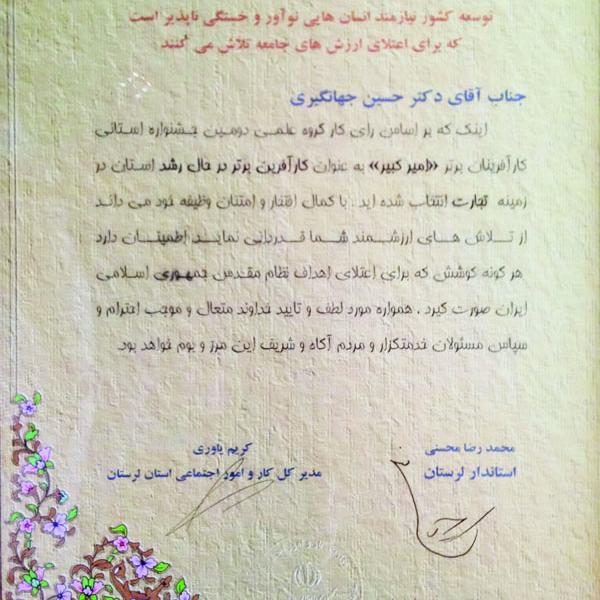 توسعه کشور نیازمند انسان هایی نوآور و خستگی ناپذیر است
که برای اعتلای ارزش های جامعه تلاش می کنند
جناب آقای دکتر حسین جهانگیری
اینک که بر اساس رای کار گروه علمی دومین جشنواره استانی
کارآفرینان برتر «امیر کبیر» به عنوان کارآفرین برتر در حال رشد استان در
زمینه تجارت انتخاب شده اید . با کمال افتخار و امتنان وظیفه خود می داند
از تلاش های ارزشمند شما قدردانی نماید اطمینان دارد
هر گونه کوشش که برای اعتلای اهداف نظام مقدس جمهوری اسلامی
ایران صورت گیرد . همواره مورد لطف و تایید خداوند متعال و موجب احترام و
سپاس مسئولان خدمتگزار و مردم آگاه و شریف این مرز و بوم خواهد بود.
محمد رضا محسنی
استاندار لرستان
کریم یاوری
مدیر کل کار و امور اجتماعی استان لرستان